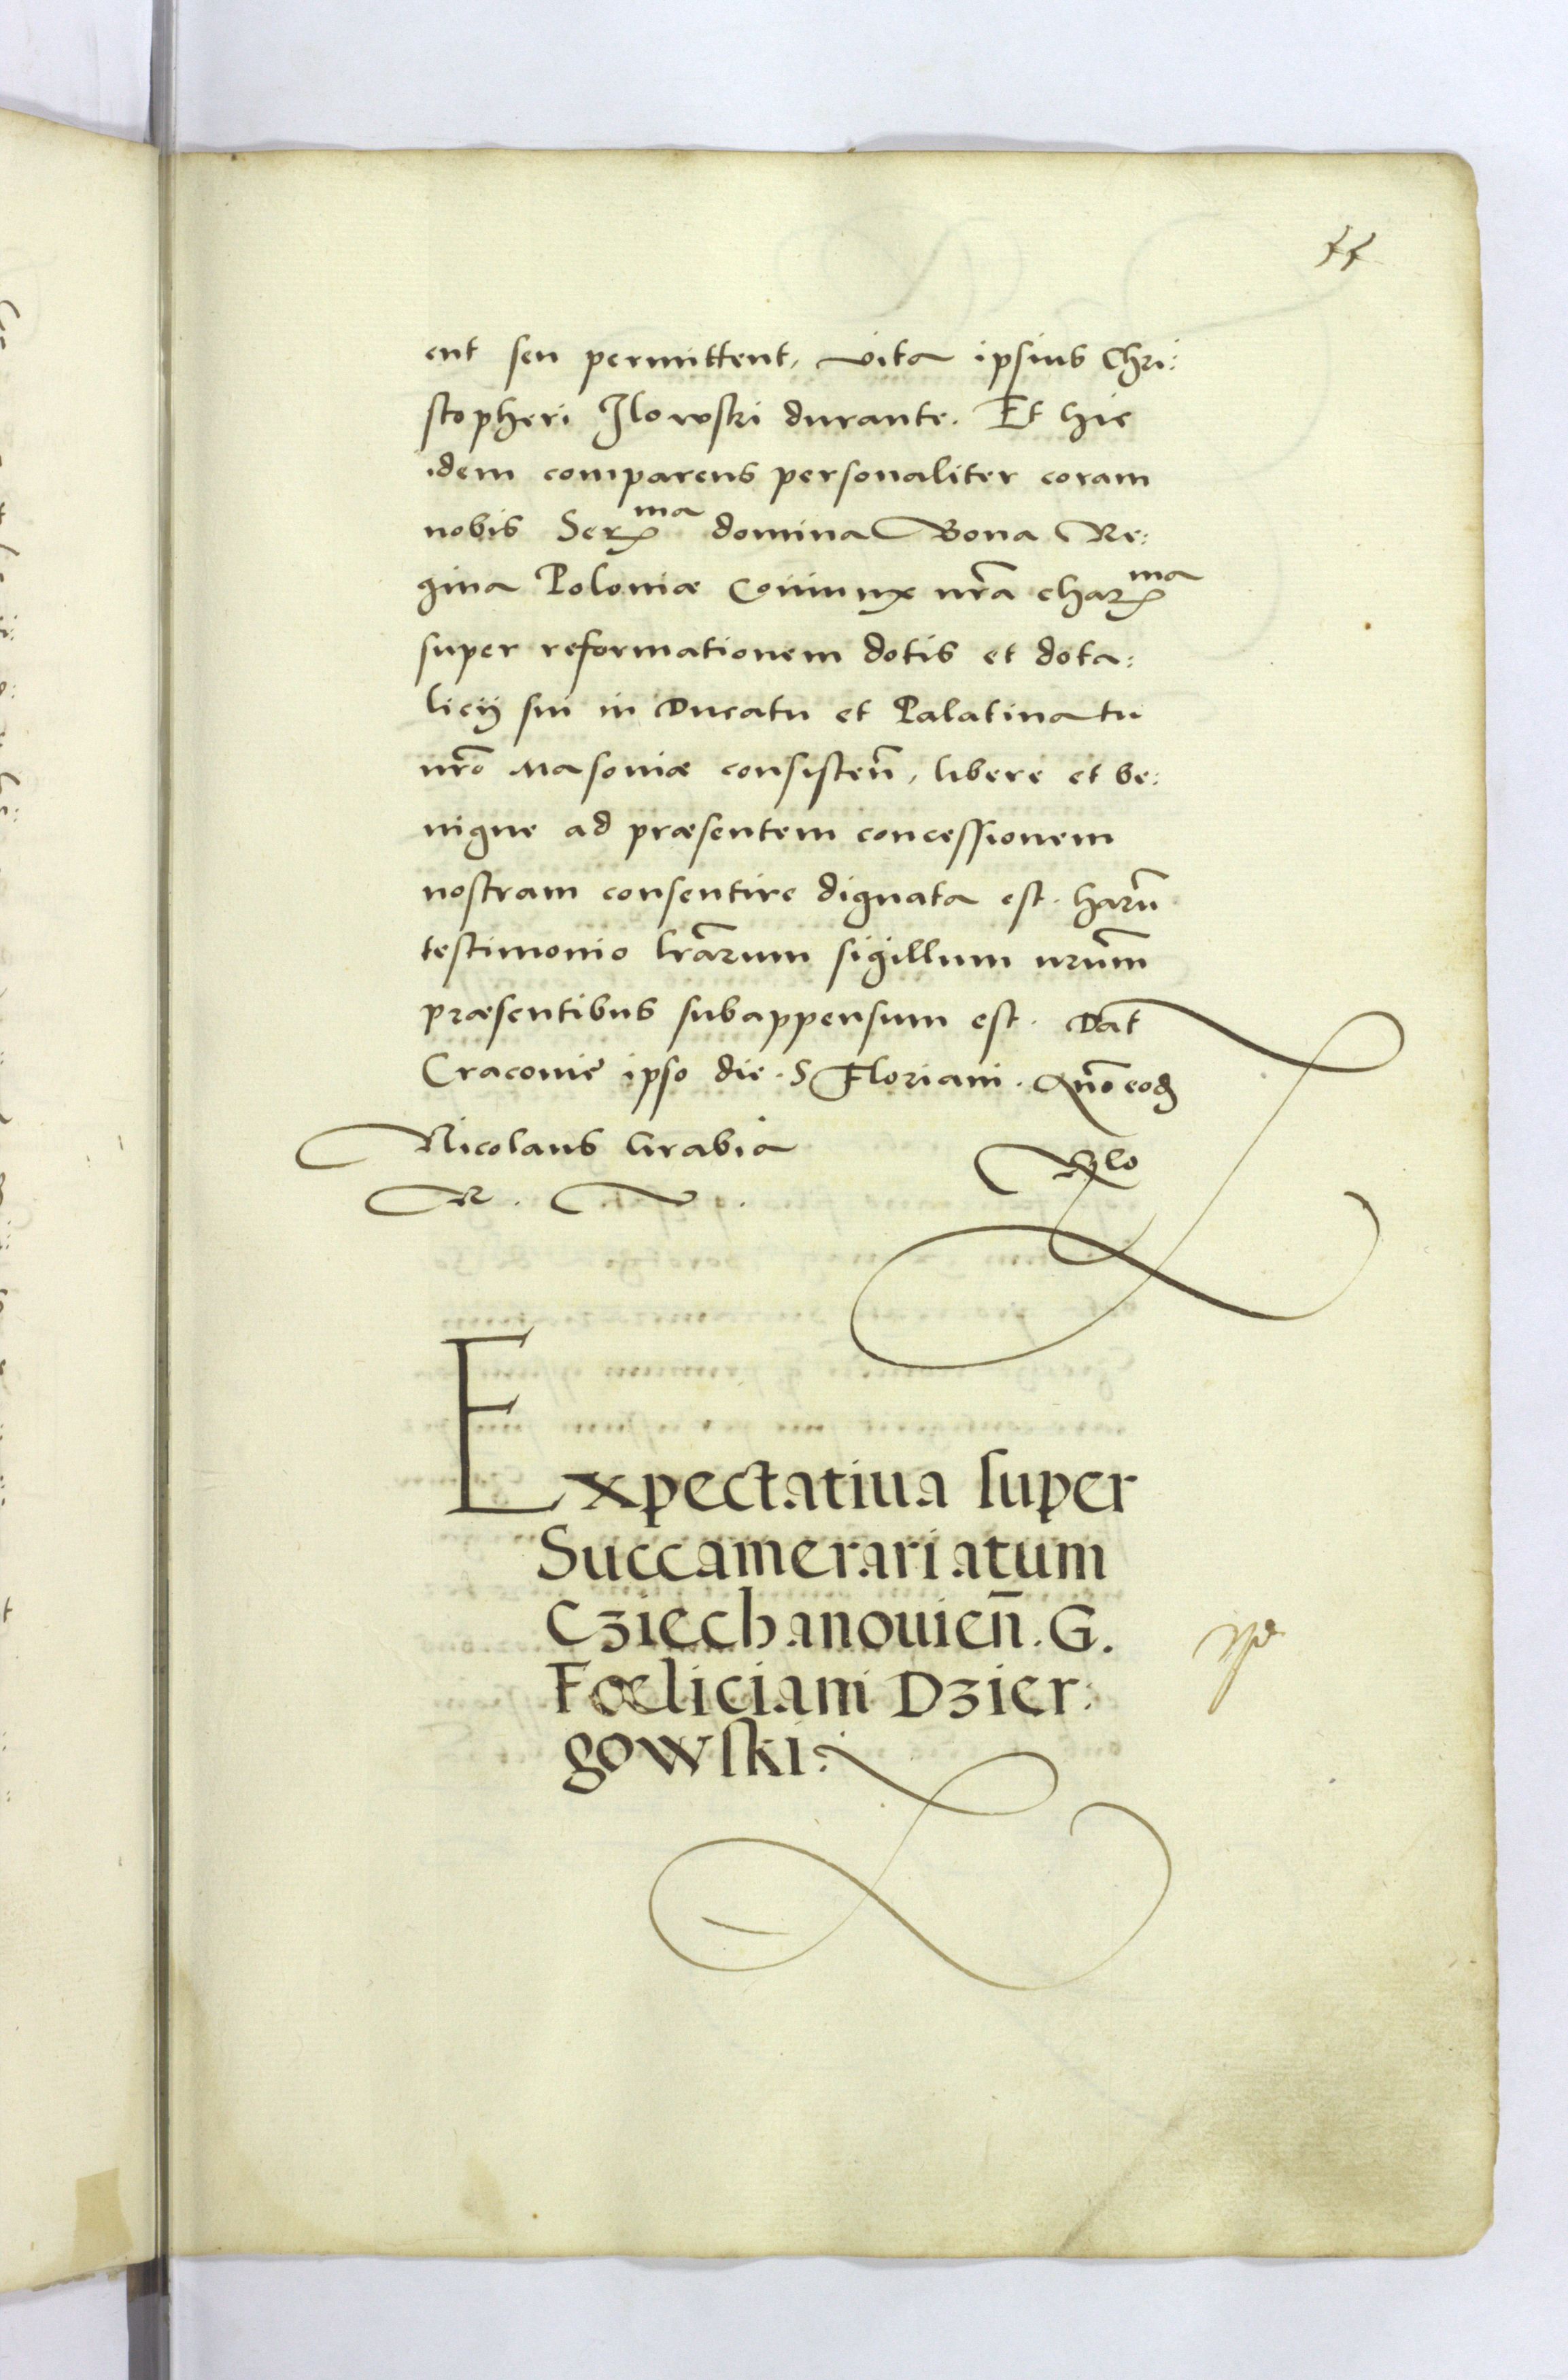 ent seu permittent, vita ipsius Chri:
stopheri Ilowski durante. Et hic
idem comparens personaliter coram
nobis Ser^ma domina Bona Re:
gina Poloniæ Coniunx nr̃a char^ma
super reformationem dotis et dota:
licÿ sui in Ducatu et Palatinatu
nr̃o Masoniæ consisteñ, libere et be:
nigne ad præsentem concessionem
nostram consentire dignata est. harũ
testimonio lr̃arum sigillum nrũm
præsentibus subappensum est. Dat̃
Cracoviẽ ipso die. S Floriani. Anno eod
Nicolaus Grabia
R. V.
Expectatiua super
Succamerariatum
Cziechanouieñ. G.
Fœliciani Dzier:
gowski: